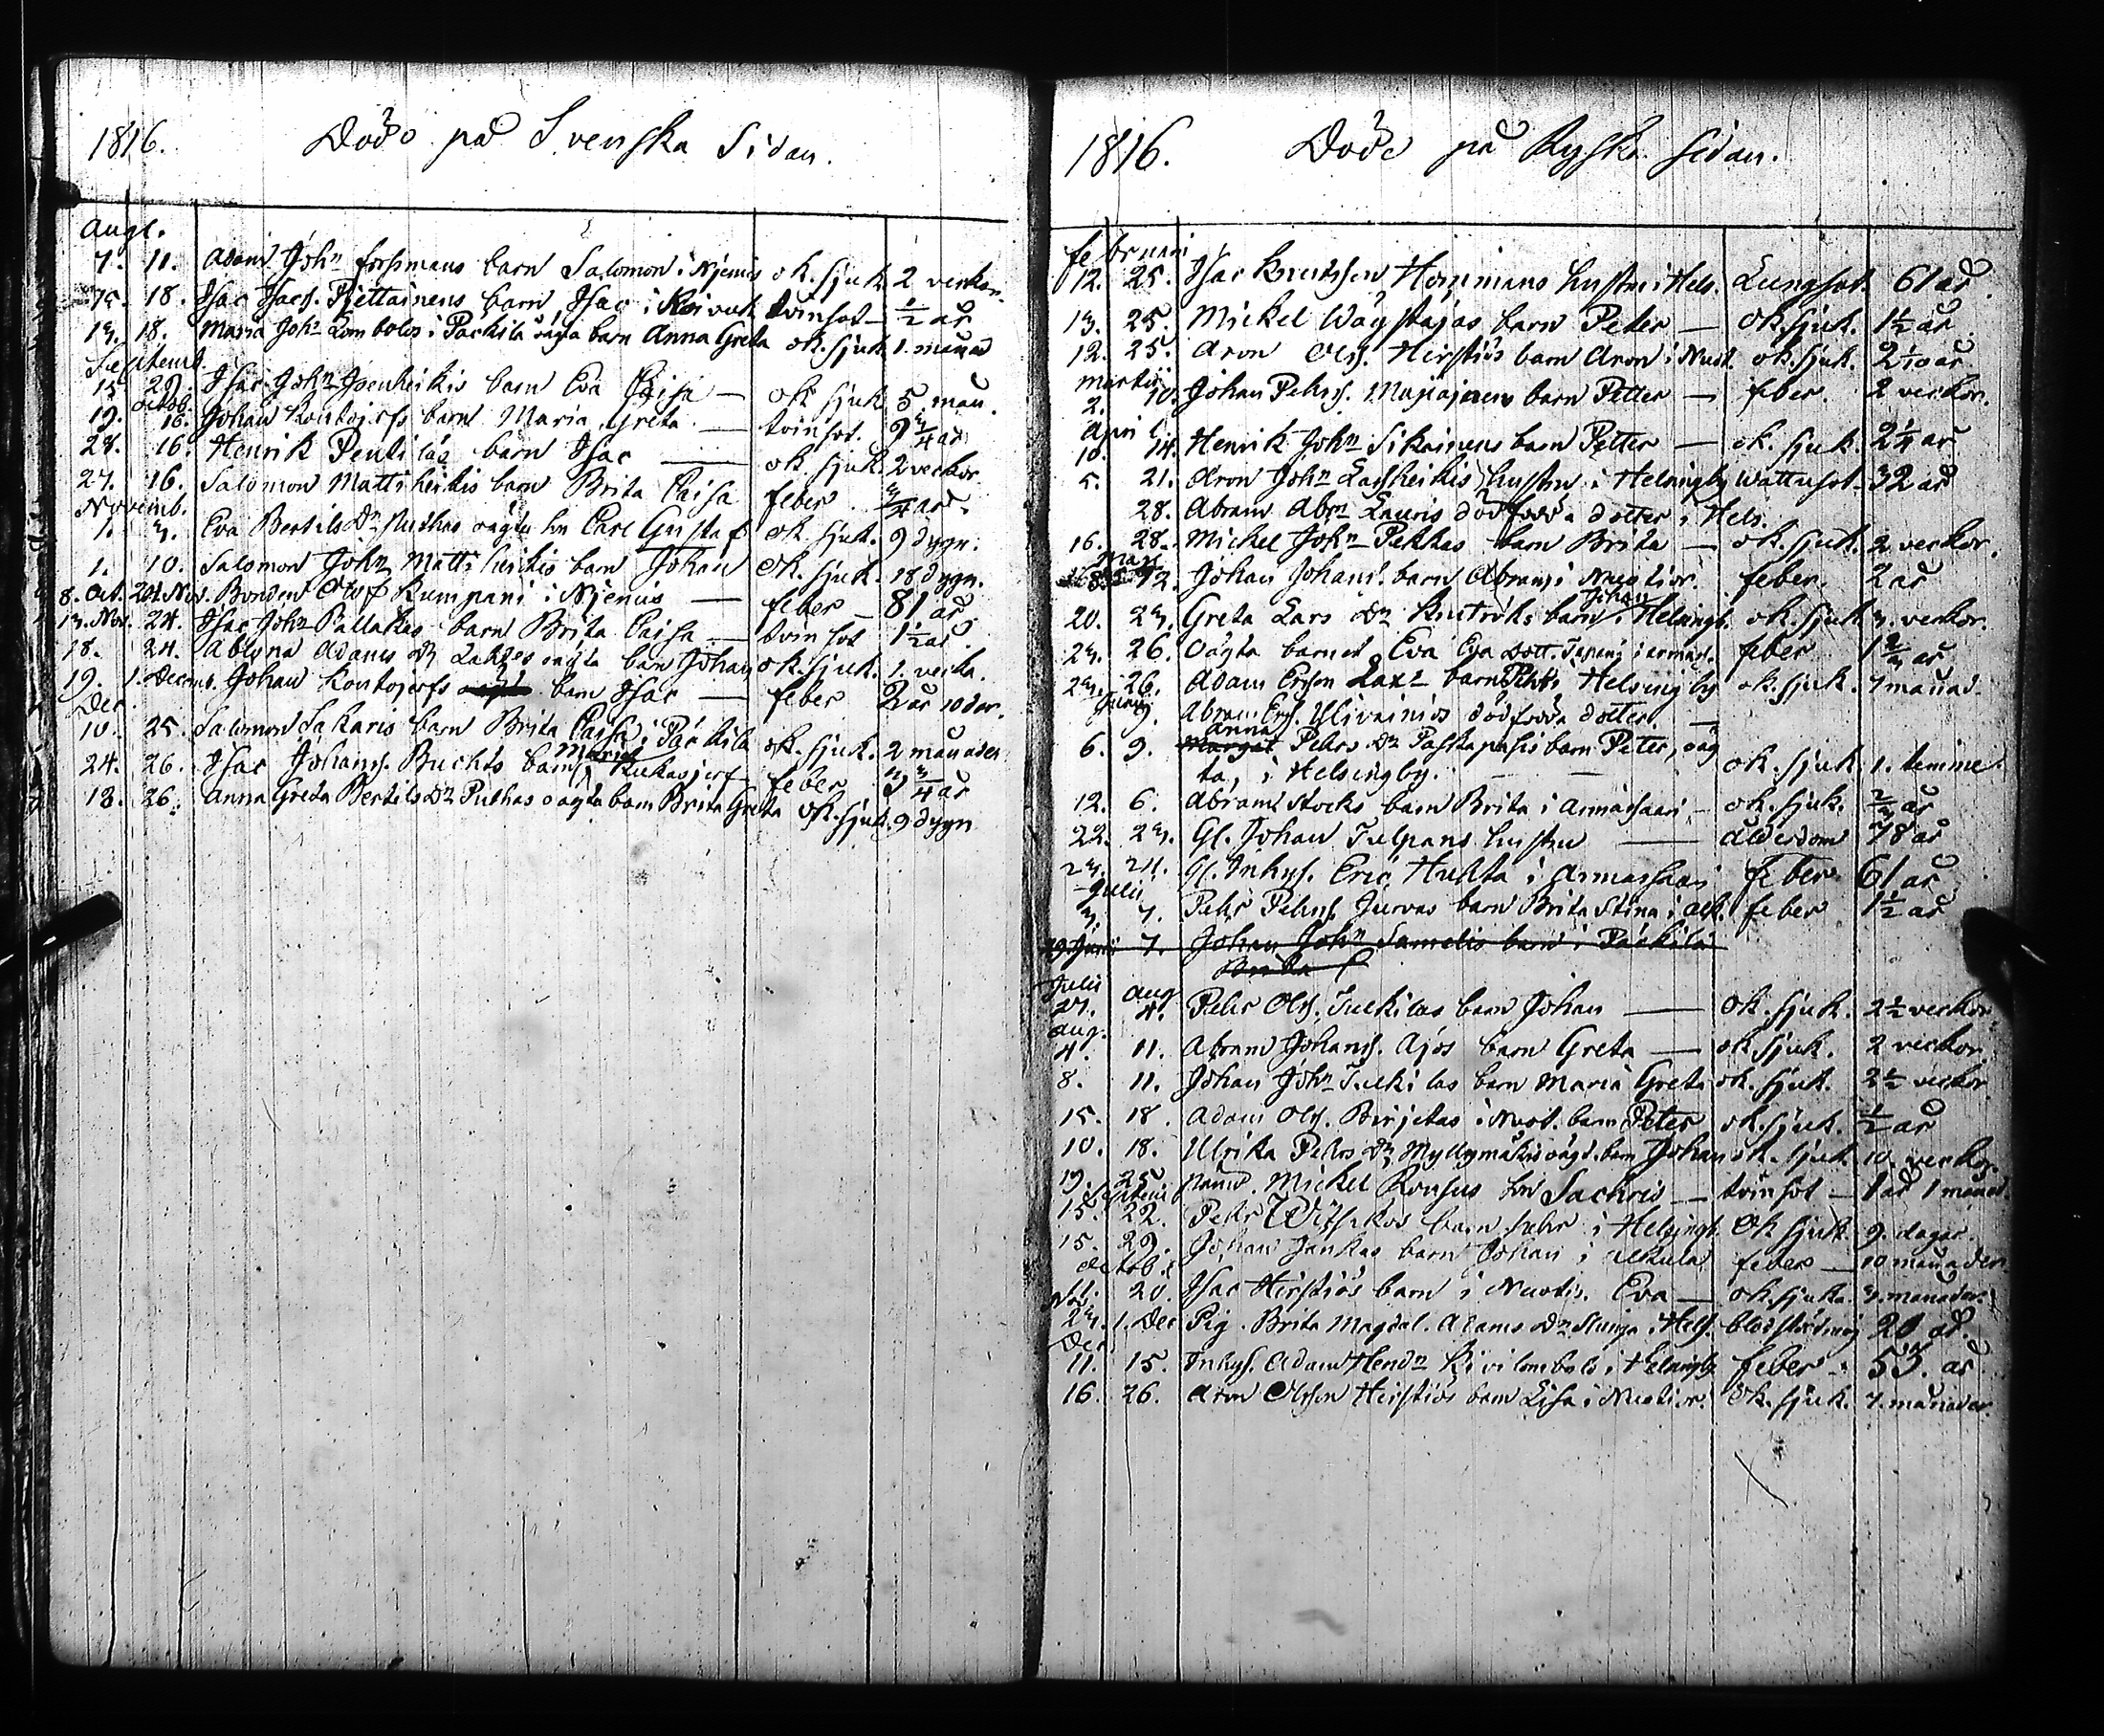 1816. Döde på Svenska Sidan.
Augt.
7. 11. Adam John Forssmans barn Salomon i Njemis ok. sjuk. 2 veckor.
15. 18. Isac Isacs. Pjettäinens barn Isac i Koivuk tvinsot ½ år
13. 18. Maria John Lombolos i Päckilä oägta barn Anna Greta ok. sjuk. 1. månad
Septemb.
15 29. Isac John Isonheikis barn Eva Caisa — ok sjuk 5 mån.
octob.
19. 16. Johan Kontojerfs barn Maria Greta — tvinsot. 9 ¾ år
28. 16. Henrik Pentiläs barn Isac — ok. sjuk 2 veckor
27. 16. Salomon Mattiheikis barn Brita Caisa feber ¾ år.
Novemb.
1. 3. Eva Bertils Dr Ruthas oägta bn Carl Gustaf ok sjuk. 9 dygn.
1. 10. Salomon John Mattiheikis barn Johan ok. sjuk. 18 dygn.
8. Oct. 20. Nov. Bonden Olof Kumpani i Njemis — feber — 81 år
13. Nov. 24. Isac John Pallakas barn Brita Caisa — tvinsot 1½ år
18. 24. Abluna Adams Dr Lahtes oägta barn Johan ok. sjuk. 1. vecka.
19. 1. Decemb. Johan Kontojerfs oägta barn Isac — feber 2 år 10 dar.
Dec.
10. 25. Salomon Sakaris barn Brita Caisa i Päckilä ok. sjuk. 2 månader
24. 26. Isac Johans. Buchts barn Maria i Kukasjerf feber 3 ¾ år
18. 26. Anna Greta Bertils Dr Ruthas oägta barn Brita Greta ok. sjuk. 9 dygn
1816. Döde på Ryska sidan.
februari
12. 25. Isac Knutsson Hommans hustru i Hels. Lungsot. 61 år
13. 25. Mickel Wägstajas barn Peter — ok. sjuk. 1½ år
12. 25. Aron Ols. Hirstiös barn Aron i Nuot. ok. sjuk. 2 år
martii
2. 10. Johan Pehrs. barn Petter — feber. 2 veckor.
April
10. 14. Henrik John Sikainens barn Petter — ok. sjuk. 2¼ år
5. 21. Aron John Lassheikis hustru i Helsingby wattusot 32 år
28. Abram Abrm Lauris dödfödda dotter i Hels.
16. 28. Mickel John Pekkas barn Brita — ok. sjuk. 2 veckor.
Maji
8. 12. Johan Johans. barn Abram i Nuotior. feber. 2 år
20. 23. Greta Lars Dr barn Johan i Helsingb. ok. sjuk 3. veckor.
23. 26. Oägta barnet Eva Eva Dott. Tapani i armas. feber 1⅔ år
23. 26. Adam Ersson Lax barn Pehr i Helsingby ok. sjuk. 7 månad.
Junii
9. Abram Ers. Ylivainios dödfödda dotter. —
6. 9. Margat Anna Pehrs Dr barn Peter, oäg
ta, i Helsingby. — ok. sjuk 1. timme
12. 6. Abram Stocks barn Brita i Armassaari — ok. sjuk. ⅔ år
22. 23. Gl. Johan Tulpans hustru — ålderdom 78 år
23. 24. Gl. Inhys. Eric Huhta i Armassaari feber 61 år
Julii
3. 7. Pehr Pehrs. Jurvas barn Brita Stina i Alk. feber 1½ år
19 Junii 7. Johan John Samelis barn i Päckilä
Brita
Julii Aug
27. 4. Pehr Ols. Juckilas barn Johan — ok. sjuk. 2½ veckor
Aug.
4. 11. Abram Johans. Ajos barn Greta — ok sjuk. 2 veckor
8. 11. Johan John Juckilas barn Maria Greta ok. sjuk. 2½ veckor
15. 18. Adam Ols. Birjetas i Nuot. barn Peter ok. sjuk. ½ år
10. 18. Ulrika Pehrs Dr Myllymäkis oägt. barn Johan ok. sjuk 10. veckor.
19. 25. Nämd. Mickel Rousus bn Sachris — tvinsot — 1 år 1 månad.
Septem
15. 22. Pehr barn Pehr i Helsingb. ok sjuk. 9. dagar.
15. 29. Johan Jankas barn Johan i Alkula feber — 10 månader
Octob.
11. 20. Isac Hirstiös barn i Nuotio. Eva — ok. sjuka. 3. månader.
Nov.
23. 1. Dec Pig. Brita Magdal. Adams Dr i Hels. blodstörtning 20 år.
Dec.
11. 15. Inhys. Adam Hendn Kivilombolo i Helsingby feber. 53. år
16. 26. Aron Olsson Heistiös barn Lisa i Nuotior. ok. sjuk. 7. månader